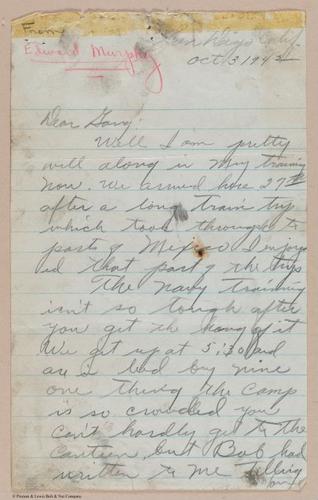 From
Edward Murphy
San Diego Calif.
Oct 3 1942
Dear Gang:
Well I am pretty
well along in my training
now. We arrived here 27th
after a long train trip
which took through to
part of Mexico I enjoy
ed that part of the trip
The navy training
isn't so tough after
you get the hang of it
We get up at 5:30 and
are in bed by nine
one thing the camp
is so crowded you
can't hardly get to the
canteen, but Bob had
written to me telling
© Preston & Lewis Bolt & Nut Company